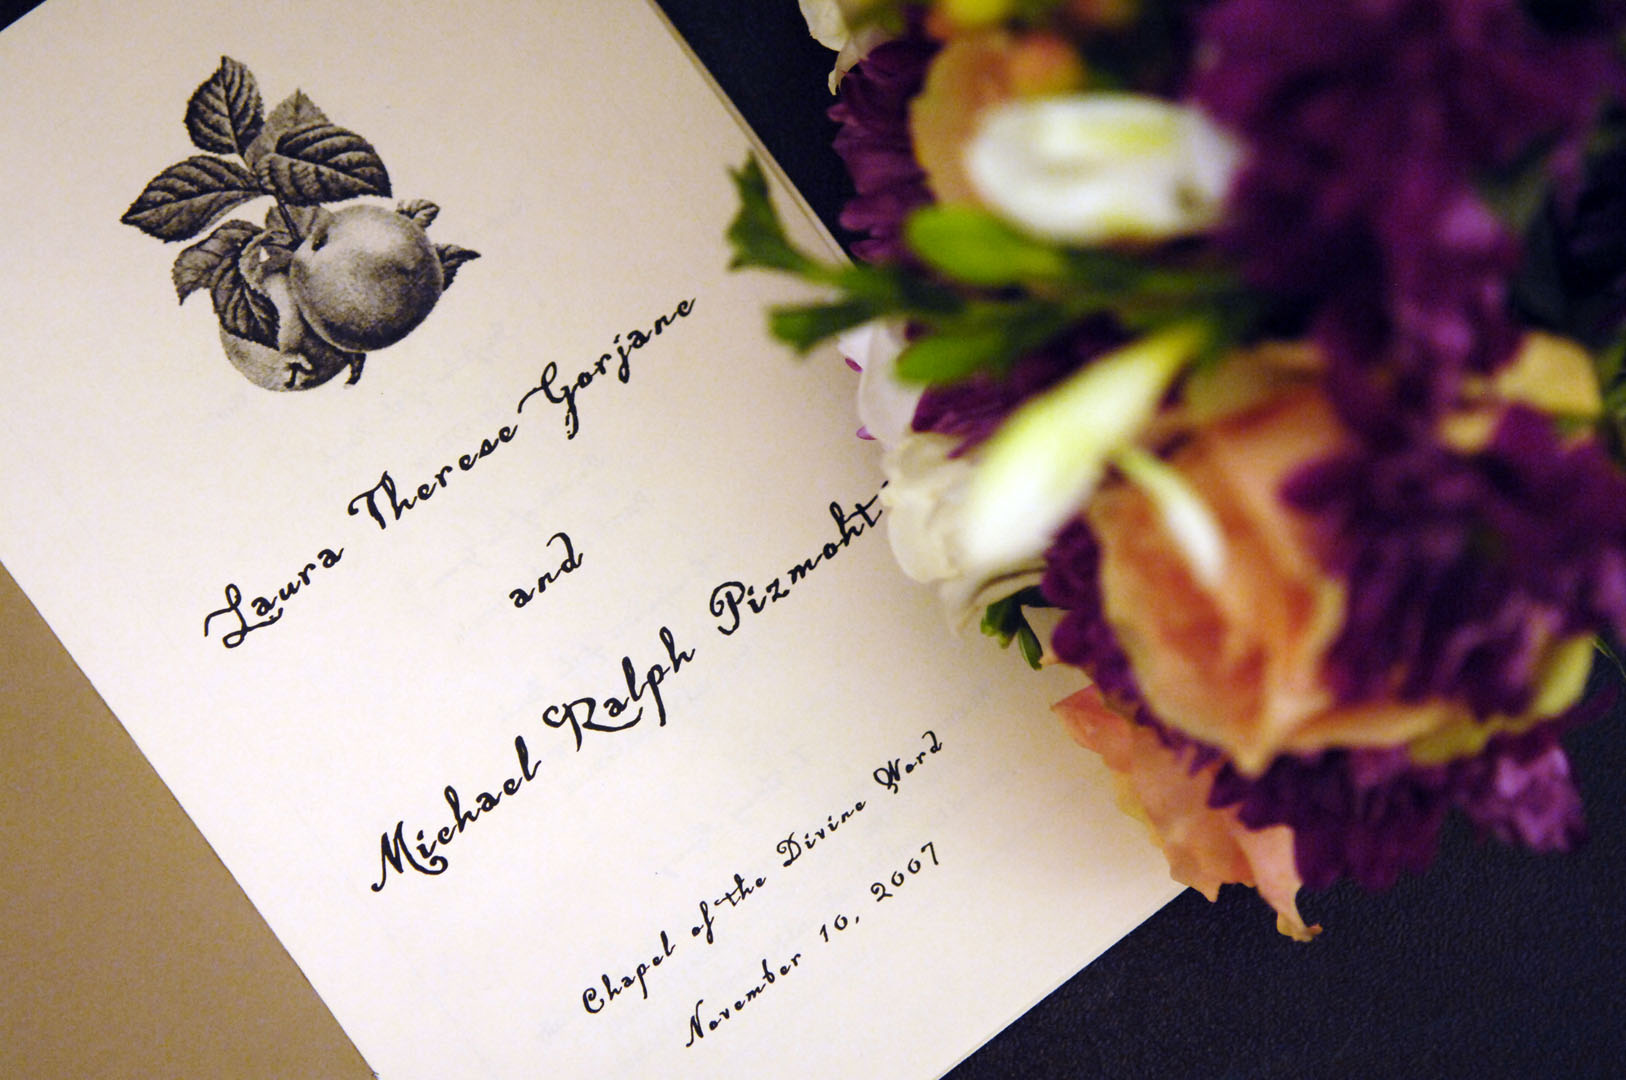 Laura Therese Gorjanc
and
Michael Ralph Pizmoht
Chapel of the Divine Word
November 10, 2007